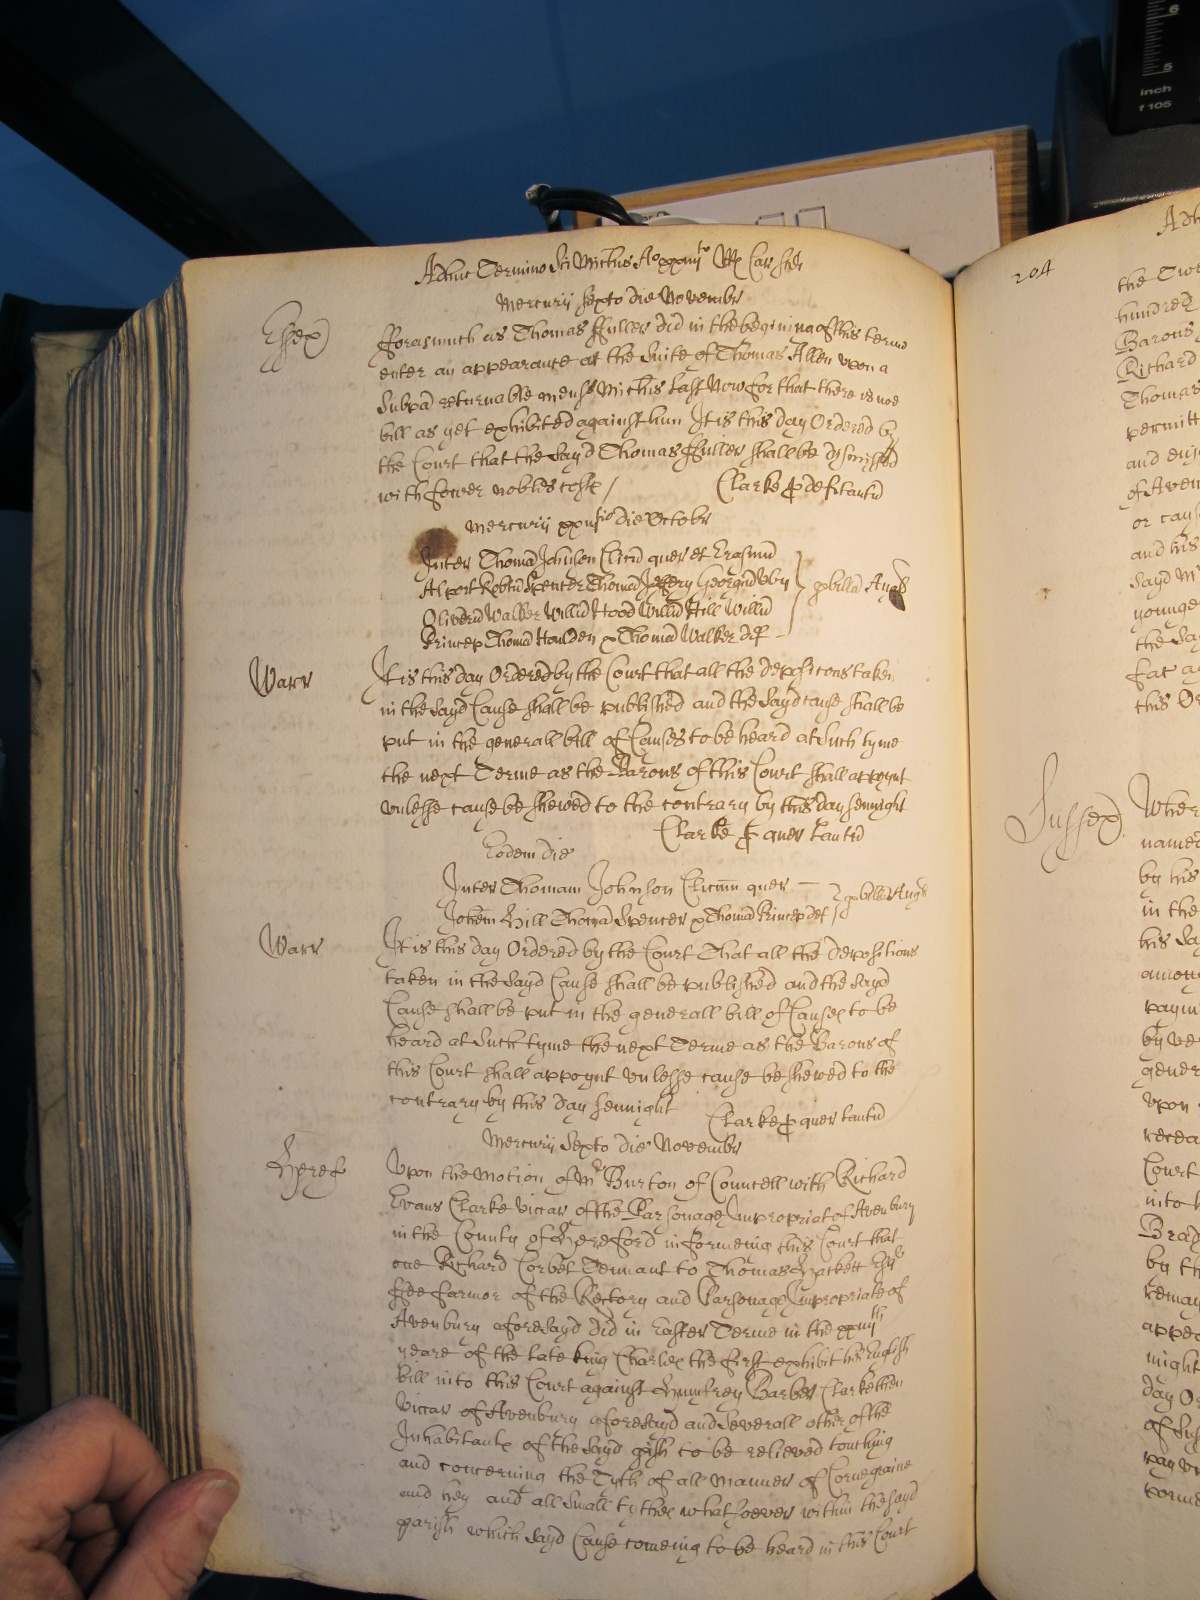 Adhuc Termino Sci Michis Ao xxiiijto Rx Car scdi
Mercurij Sexto die Novembr
Essex
fforasmuch as Thomas ffuller did in the begining of this terme
enter an appearance at the Suite of Thomas Allen upon a
Subpa returnable mense Michis last Now for that there is noe
bill as yet exhibited against him It is this day Ordered by
the Court that the Sayd Thomas ffuller shall be dismissed
with fower nobles costs / Clarke p def
Mercurij die Octobr
Inter Thomā Johnson Clicū quer et Erasmū
Alport Robtū Spencer Thomā Georgiū
Oliverū Walker Willū Hood Willū Hill Willū
Prince Thomā Houlden x Thomā Walker def
p billā Angl
Warr
It is this day Ordered by the Court that all the depositons taken
in the Sayd Cause shall be published and the Sayd cause shall be
put in the generall bill of Causes to be heard at Such tyme
the next Terme as the Barons of this Court shall appoynt
unlesse cause be shewed to the contrary by this day sennight
Clarke p quer
Eodem die
Inter Thomam Johnson Clicum quer
Johem Hill Thomā Spencer x Thomā Prince def
p billā Angl
Warr
It is this day Ordered by the Court That all the depositions
taken in the Sayd Cause shall be published and the Sayd
Cause shall be put in the generall bill of Causes to be
heard at Such tyme the next Terme as the Barons of
this Court shall appoynt unlesse cause be shewed to the
contrary by this day sennight
Clarke p quer
Mercurij Sexto die Novembr
Heref
Upon the Motion of Mr Burton of Councell with Richard
Evans Clarke vicar of the Parsonage Impropriat of Avenbury
in the County of Hereford informeing this Court that
one Richard Corbet Tennant to Thomas Hackett
ffee farmor of the Rectory and Parsonage Impropriate of
Avenbury aforesayd did in Easter Terme in the
yeare of the late king Charles the first exhibit his English
bill into this Court against Humfrey Barber Clarke then
Vicar of Avenbury aforesayd and Severall other of the
Inhabitants of the Sayd pish to be relieved touching
and concerning the Tyth of all manner of Corne graine
and hey and all Small tythes whatsoever within the sayd
parish which Sayd Cause comeing to be heard in this Court
204
Adh
the
hundred
Barons
Richard
Thomas
permitt
and
of Aven
or
and his
Sayd Mr
younge
the Say
fat
this Or
Sussex
Wher
named
by his
in the
his Sa
by
gener
upon
Court
into
by th
appea
might
day Or
of Su
inch
f 105
6
5